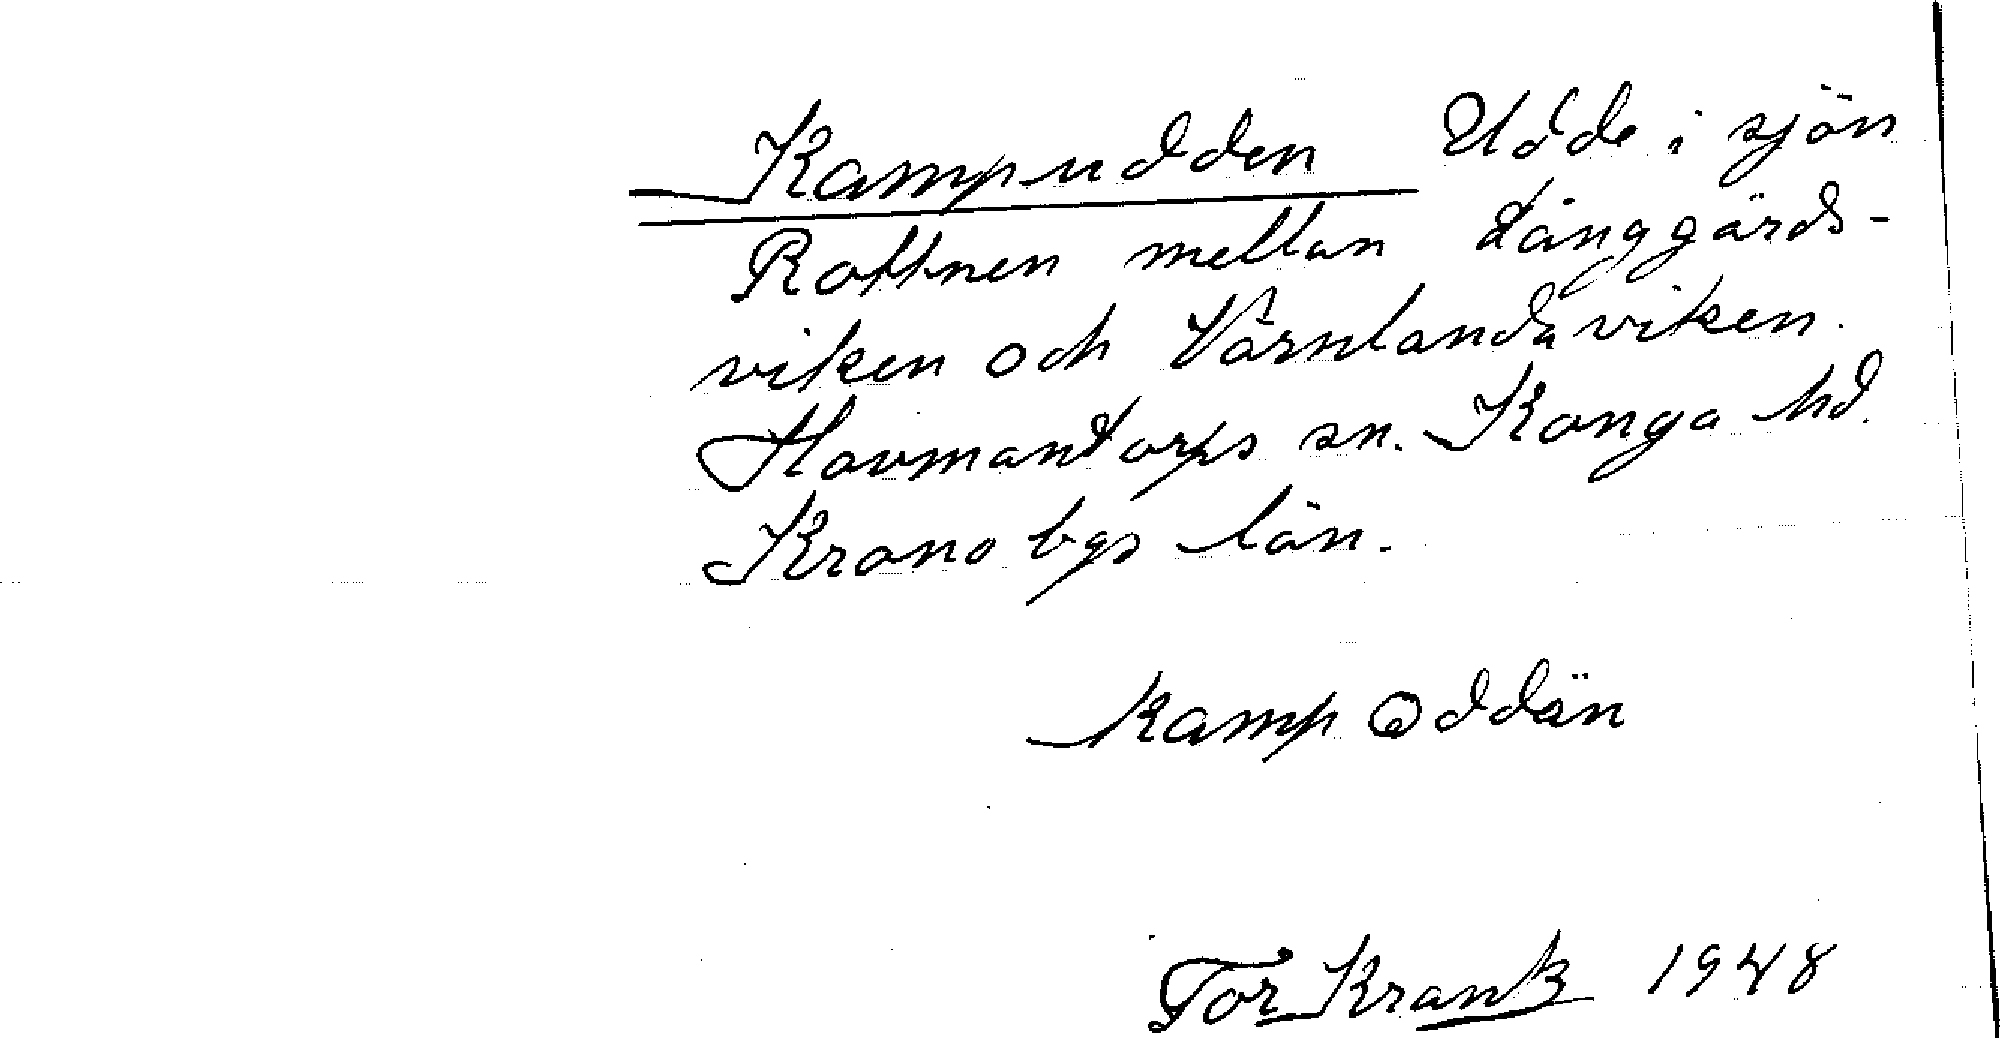 Kampudden Udde i sjön
Rottnen mellan Långgärds-
viken och Värnlandaviken.
Hovmantorps sn. Konga hd.
Kronobgs län.
kampoddän
Tor Krank 1948